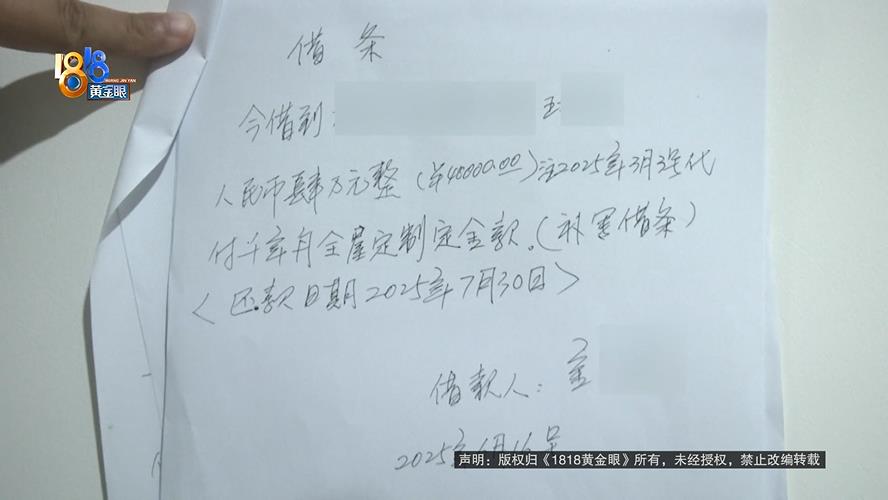 1818
HUANG JIN YAN
黄金眼
借条
今借到:
人民币肆万元整(¥40000.00)注2025年3月3号代
付千年舟全屋定制定金款。(补写借条)
〈还款日期2025年7月30日〉
借款人: 金
2025年 月16号
声明:版权归《1818黄金眼》所有,未经授权,禁止改编转载